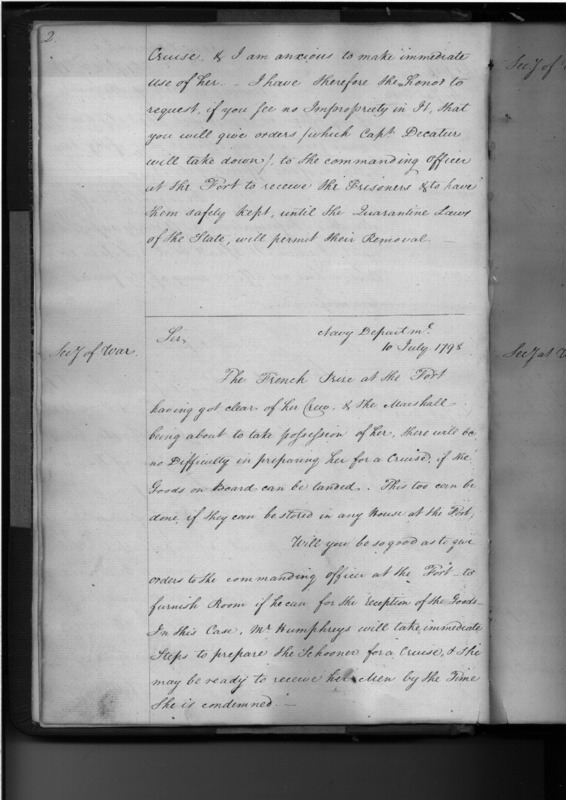 2
Cruise, & I am anxious to make immediate
use of her. – I have therefore the honor to
request, if you see no Impropriety in It, that
you will give orders (which Capt. Decatur
will take down) to the commanding Officer
at the Fort to receive the Prisoners & to have
them safely kept, until the Quarantine Laws
of the State, will permit their Removal. –
Navy Departmt.
Secy of War.
Sir,
10 July 1798
The French Prize at the Fort
having got clear of her Crew, & the Marshall
being about to take possession of her, there will be
no Difficulty in preparing her for a Cruise, if the
Goods on board can be landed. This too can be
done, if they can be stored in any House at the Fort,
Will you be so good as to give
orders to the commanding officer at the Fort – to
furnish Room if he can for the reception of the Goods –
In this Case, Mr. Humphreys will take immediate
Steps to prepare the Schooner for a Cruise, & she
may be ready to receive her Men by the Time
She is condemned. –
Secy of
Secy at